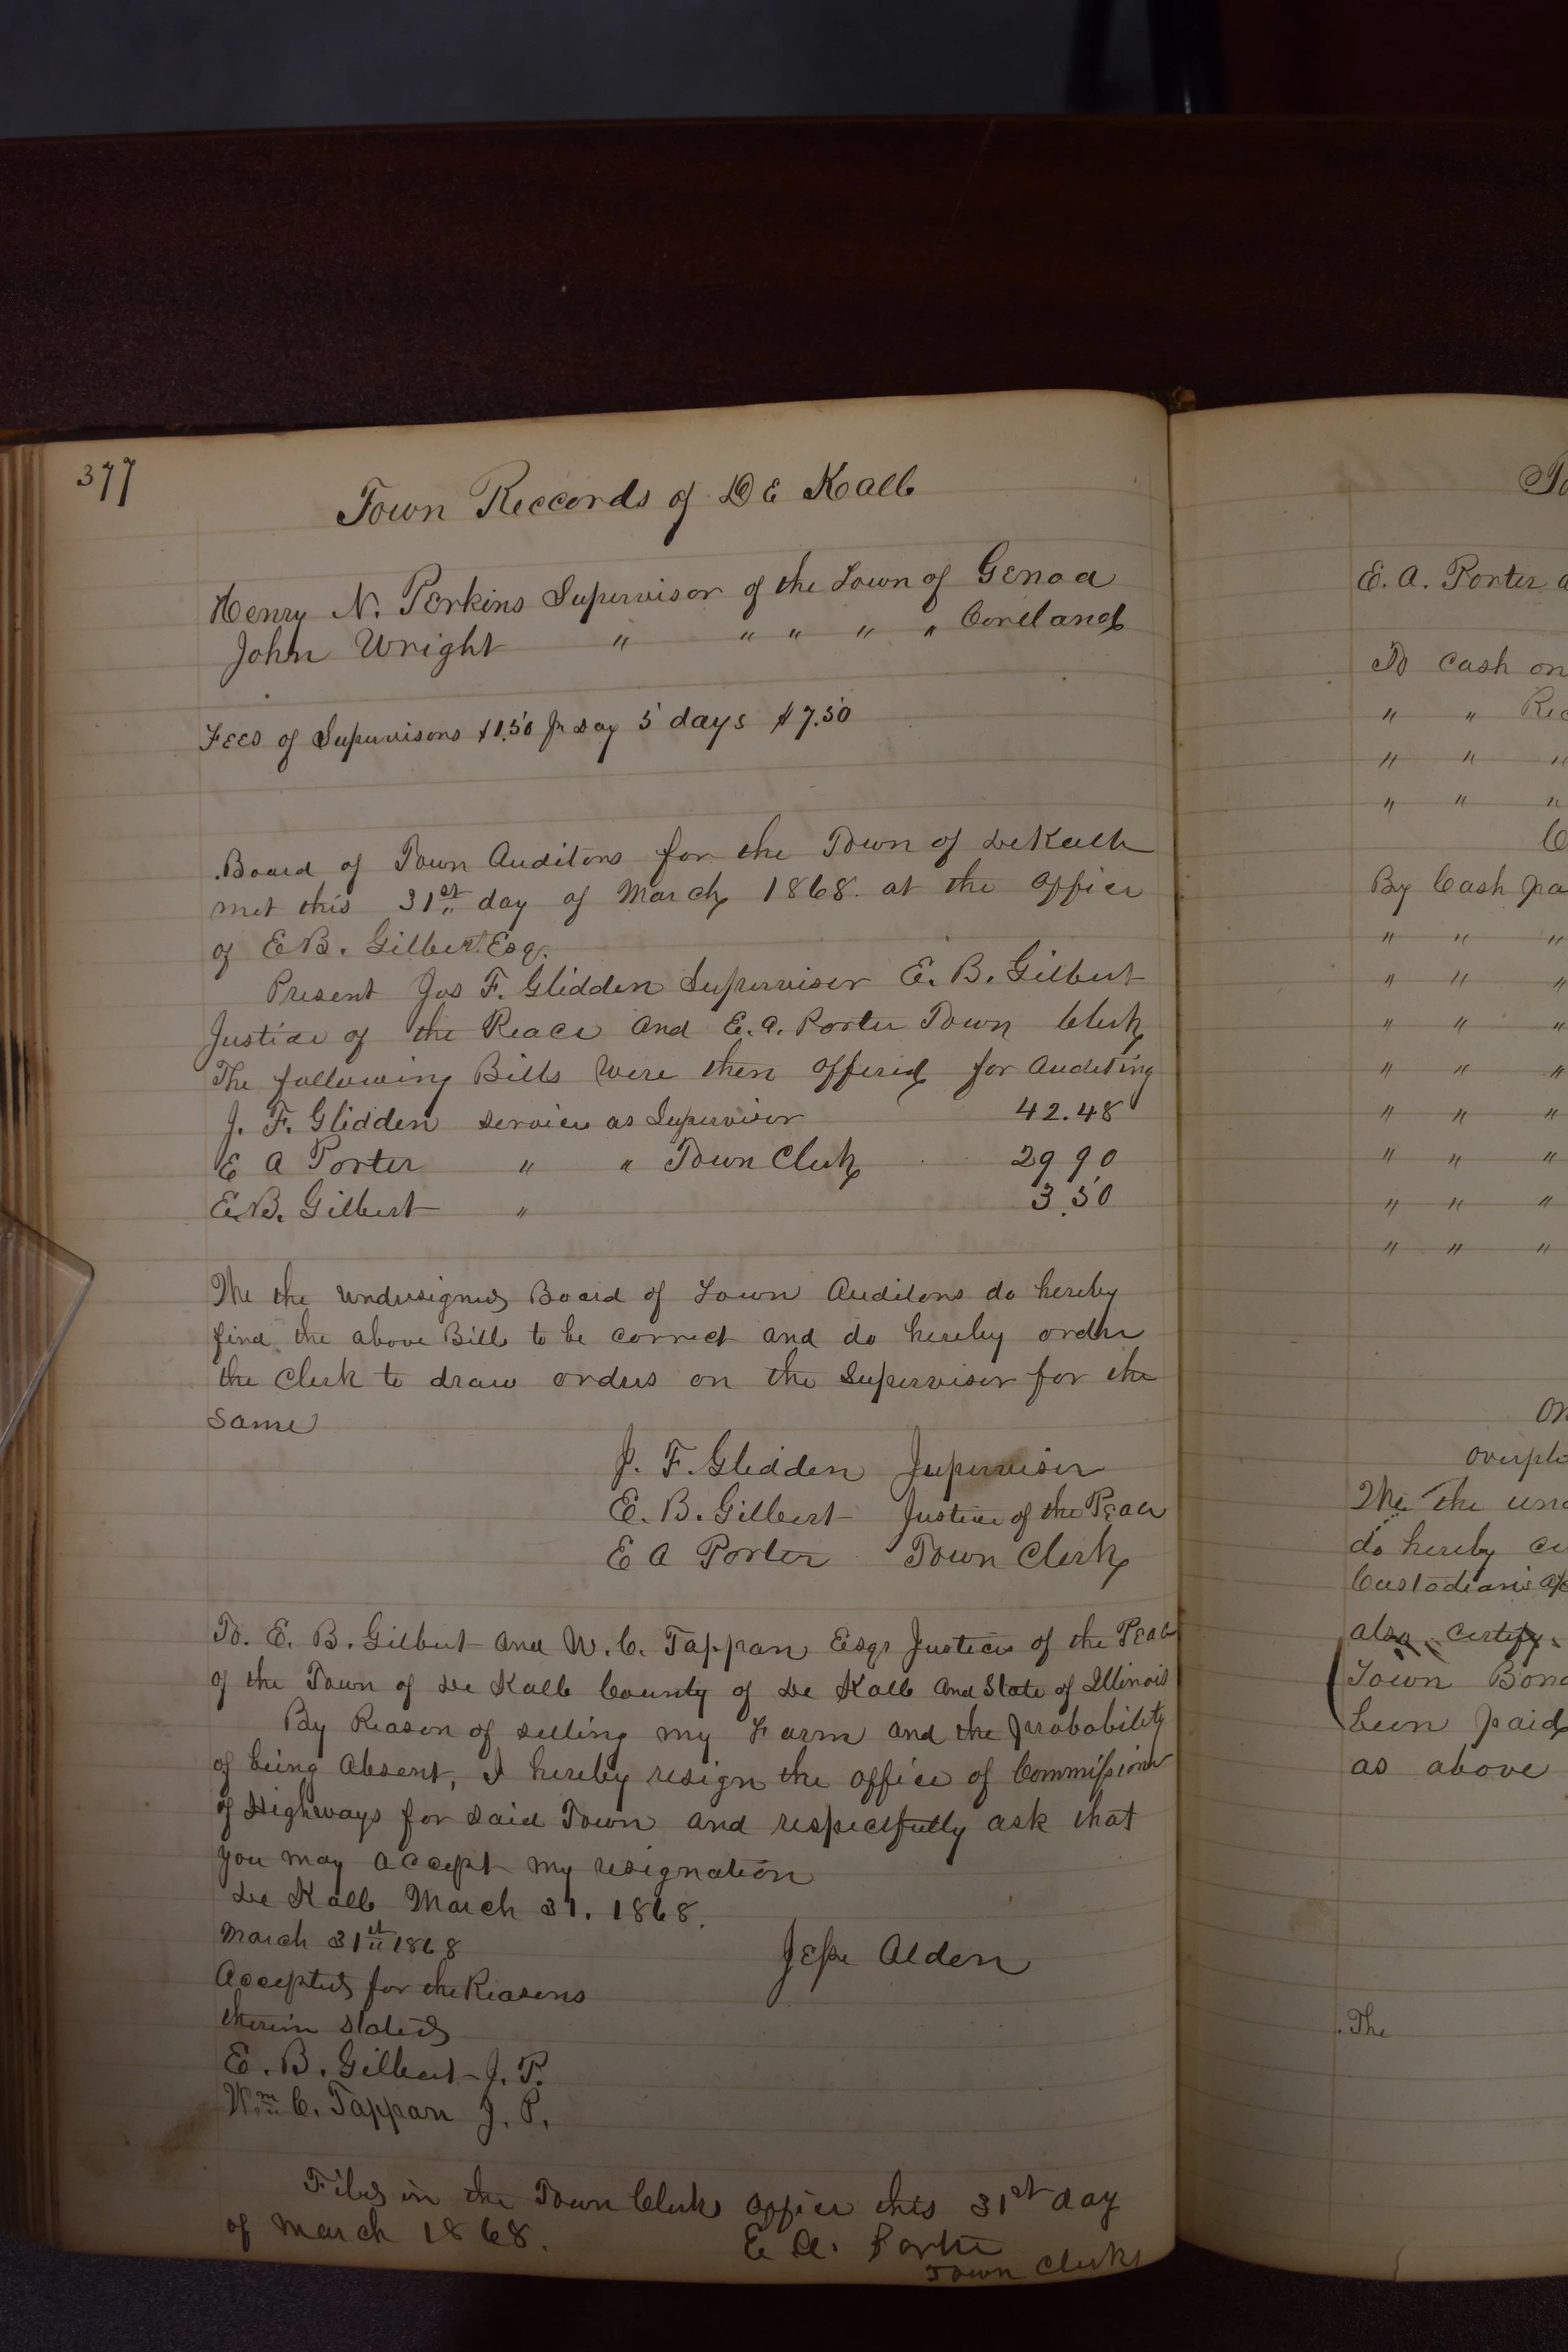 377
Town Reccords of De Kalb
Henry N. Perkins Supervisor of the Town of Genoa
John Wright " " " " " Cortland
Fees of Supervisors $1.50 pr day 5 days $7.50
Board of Town Auditors for the Town of DeKalb
met this 31st day of March 1868. at the office
of E.B. Gilbert Esq.
Present Jos F. Glidden Supervisor E. B. Gilbert
Justice of the Peace and E. A. Porter Town Clerk
The following Bills were then offered for Auditing
J. F. Glidden services as Supervisor 42.48
E A Porter " " Town Clerk 29 90
E.B. Gilbert " 3.50
We the undersigned Board of Town Auditors do hereby
find the above Bills to be correct and do hereby order
the Clerk to draw orders on the Supervisor for the
same
J. F. Glidden Supervisor
E. B. Gilbert Justice of the Peace
E A Porter Town Clerk
To. E. B. Gilbert and W. C. Tappan Esqr Justices of the Peace
of the Town of De Kalb County of De Kalb and State of Illinois
By Reason of selling my Farm and the probability
of being Absent, I hereby resign the office of Commissioner
of Highways for said Town and respectfully ask that
you may accept my resignation
De Kalb March 31. 1868.
March 31st 1868
Jesse Alden
Accepted for the Reasons
therein stated
E. B. Gilbert J. P.
Wm C. Tappan J. P.
Filed in the Town Clerks office this 31st day
of March 1868.
E. A. Porter
Town Clerk
To
E. A. Porter
To Cash on
" " Rec
" " "
" " "
By Cash pa
" " "
" " "
" " "
" " "
" " "
" " "
" " "
" " "
overplu
We the und
do hereby ce
Custodians
also certify
Town Bond
been paid
as above
The